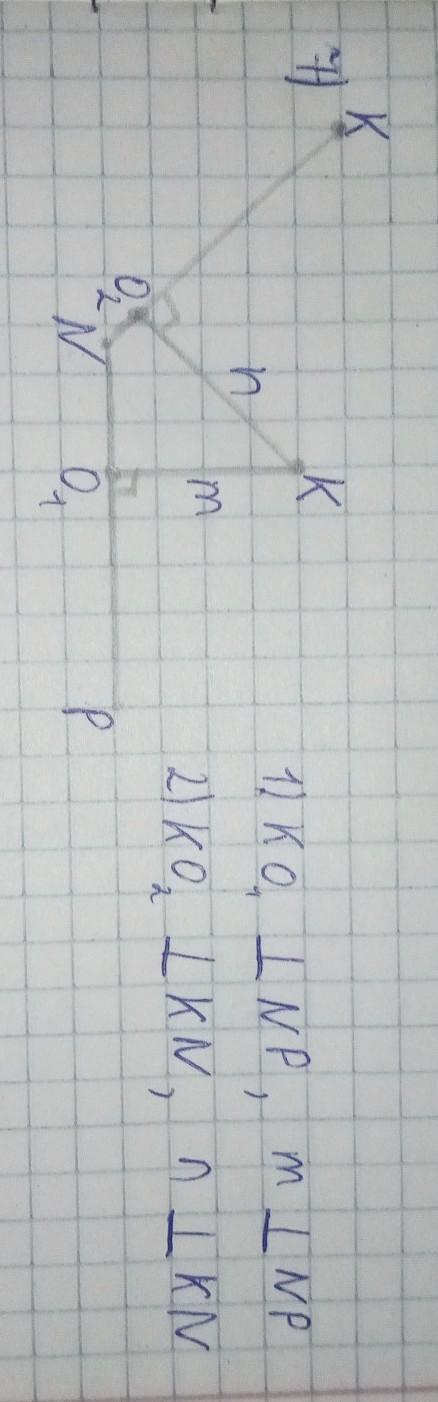 7)
K
O₂
N
n
K
m
O₁
P
1) KO₁ ⊥ NP, m ⊥ NP
2) KO₂ ⊥ KN, n ⊥ KN